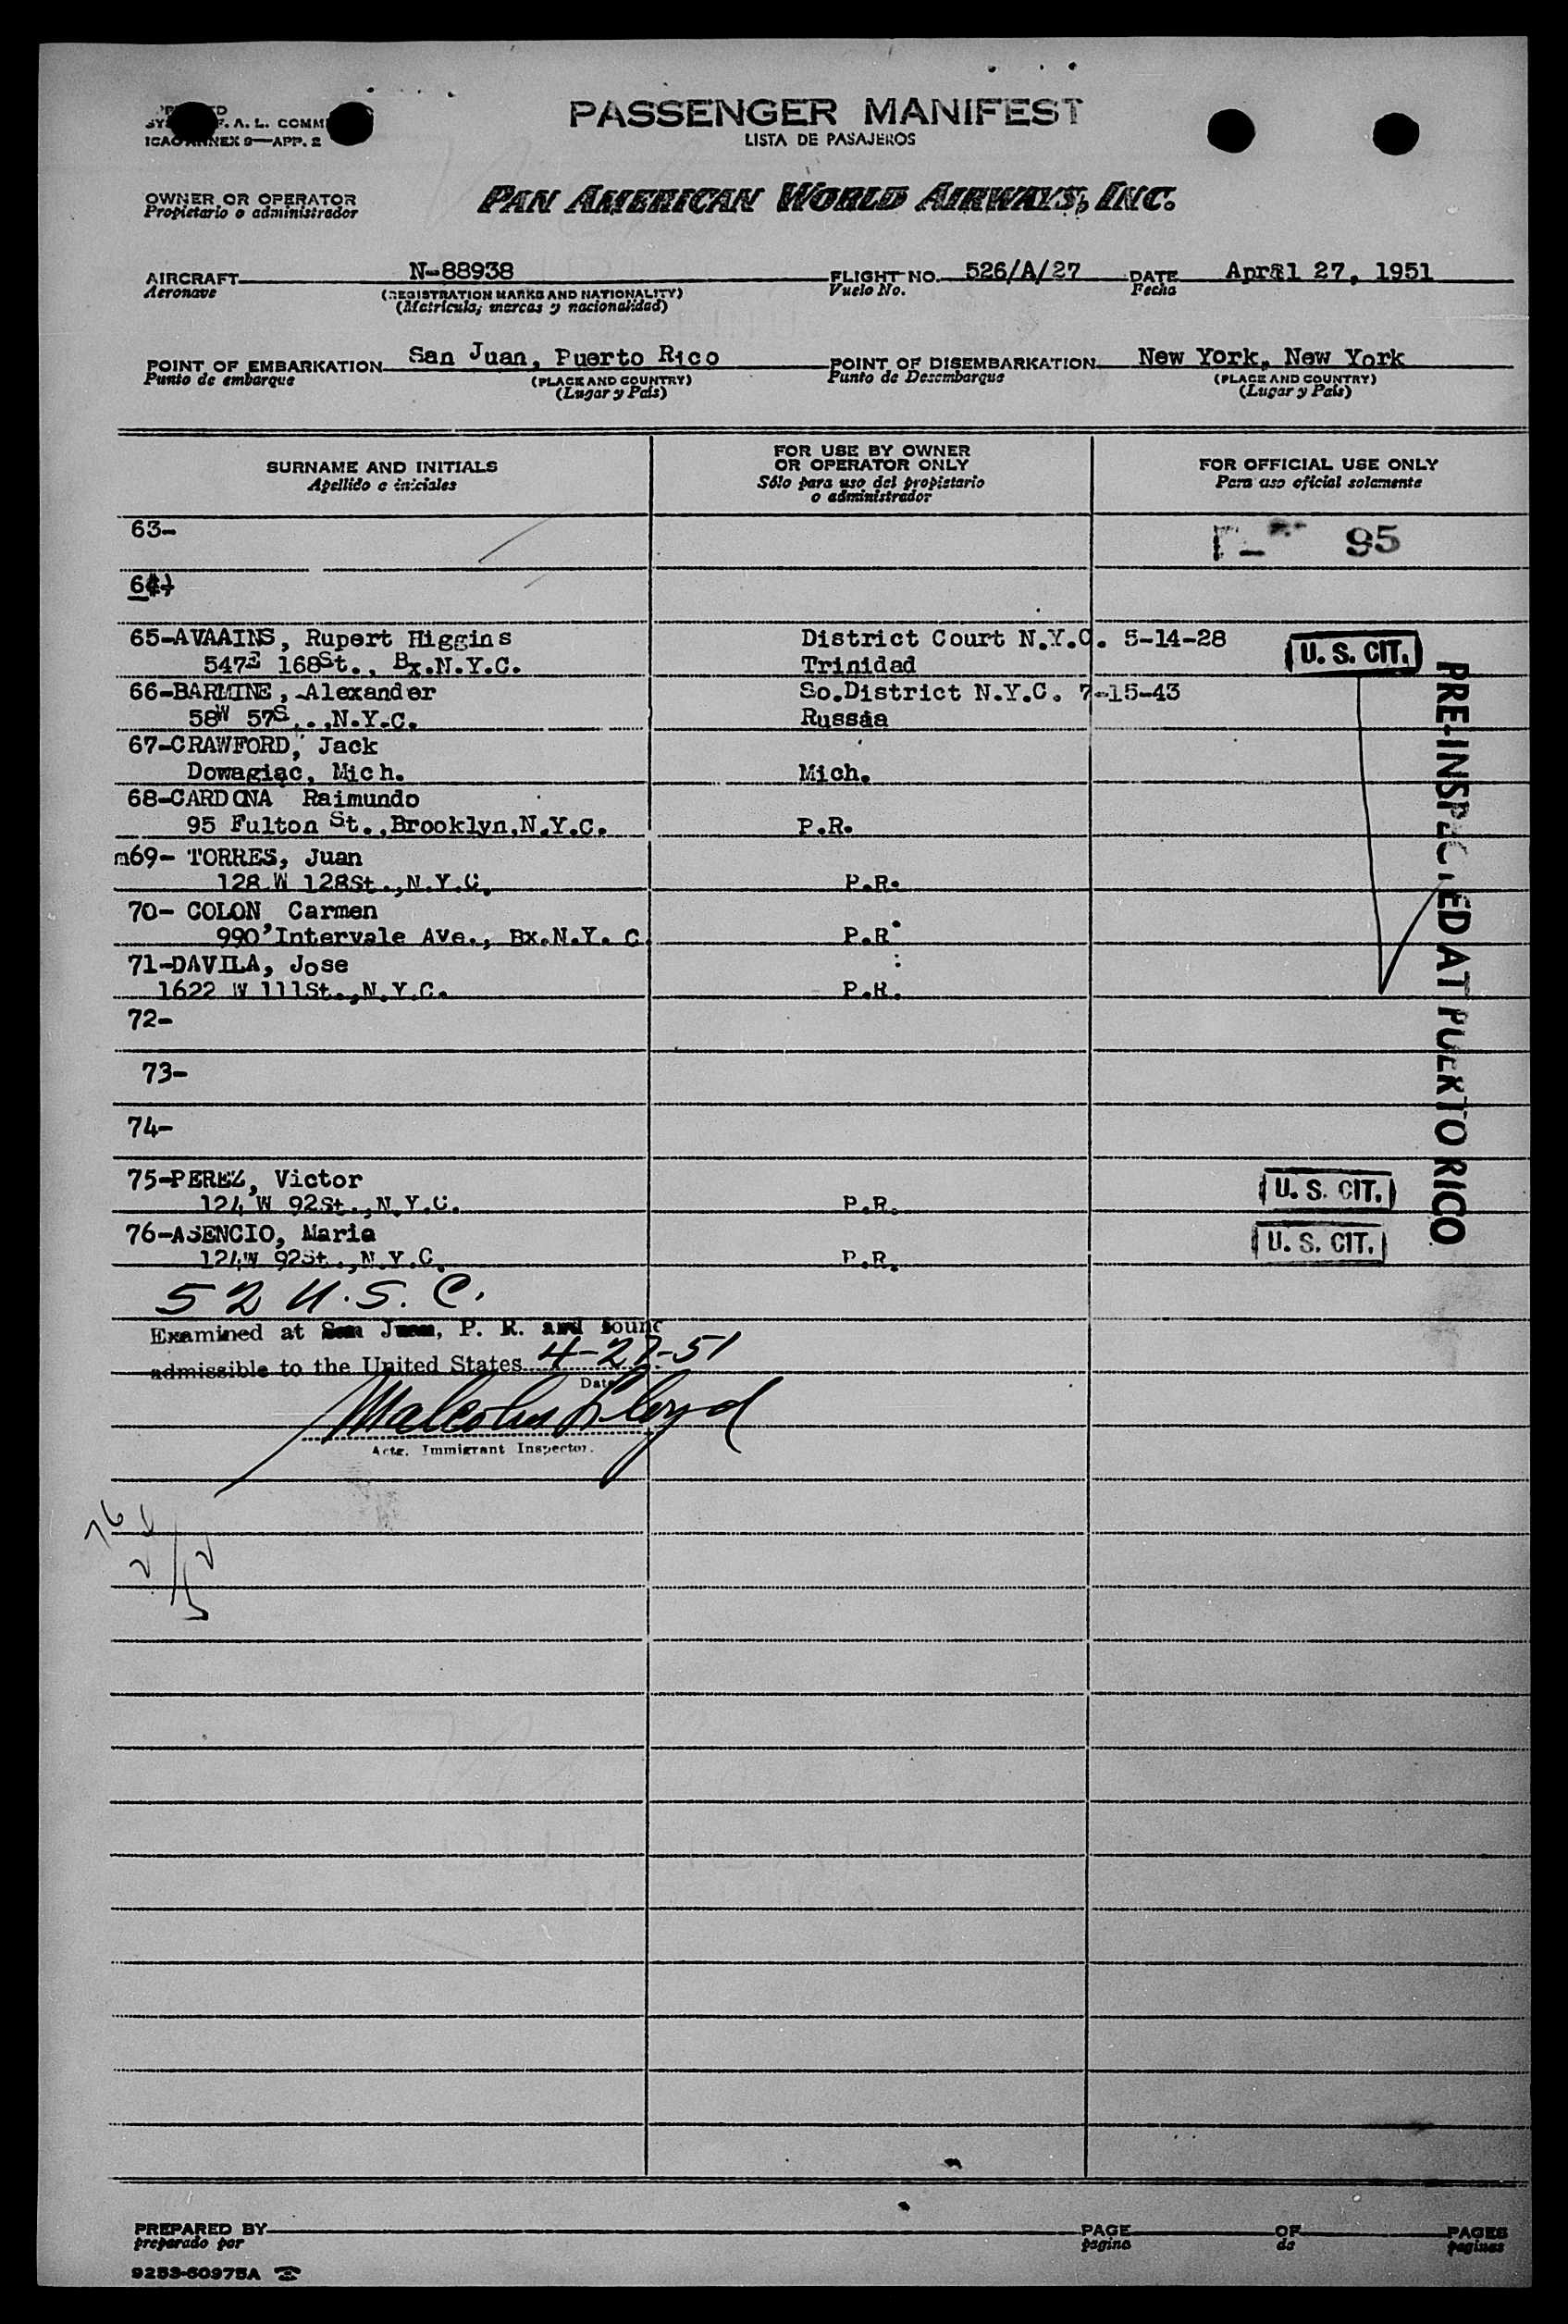 PASSENGER MANIFEST
LISTA DE PASAJEROS
F. A. L. COMM
ICAO ANNEX 9—APP. 2
OWNER OR OPERATOR
Propietario o administrador
PAN AMERICAN WORLD AIRWAYS, INC.
AIRCRAFT N-88938 FLIGHT NO. 526/A/27 DATE April 27, 1951
Aeronave (REGISTRATION MARKS AND NATIONALITY) Vuelo No. Fecha
(Matrícula, marcas y nacionalidad)
POINT OF EMBARKATION San Juan, Puerto Rico POINT OF DISEMBARKATION New York, New York
Punto de embarque (PLACE AND COUNTRY) Punto de Desembarque (PLACE AND COUNTRY)
(Lugar y País) (Lugar y País)
SURNAME AND INITIALS FOR USE BY OWNER OR OPERATOR ONLY FOR OFFICIAL USE ONLY
Apellido e iniciales Sólo para uso del propietario o administrador Para uso oficial solamente
63- 95
64-
65-AVAAINS, Rupert Higgins District Court N.Y.C. 5-14-28 U. S. CIT.
547E 168St., Bx.N.Y.C. Trinidad
66-BARMINE, Alexander So.District N.Y.C. 7-15-43
58W 57S.,N.Y.C. Russia
67-CRAWFORD, Jack
Dowagiac, Mich. Mich.
68-CARDONA Raimundo
95 Fulton St.,Brooklyn,N.Y.C. P.R.
m69- TORRES, Juan
128 W 128St.,N.Y.C. P.R.
70- COLON, Carmen
990 Intervale Ave., Bx.N.Y. C. P.R.
71-DAVILA, Jose
1622 W 111St.,N.Y.C. P.R.
72-
73-
74-
75-PEREZ, Victor U. S. CIT.
124 W 92St.,N.Y.C. P.R.
76-ASENCIO, Maria U. S. CIT.
124W 92St.,N.Y.C. P.R.
PRE-INSPECTED AT PUERTO RICO
52 U.S.C.
Examined at San Juan, P. R. and found
admissible to the United States 4-27-51
Date
Malcolm Lloyd
Actg. Immigrant Inspector.
76
52
PREPARED BY PAGE OF PAGES
preparado por pagina de paginas
9253-60975A